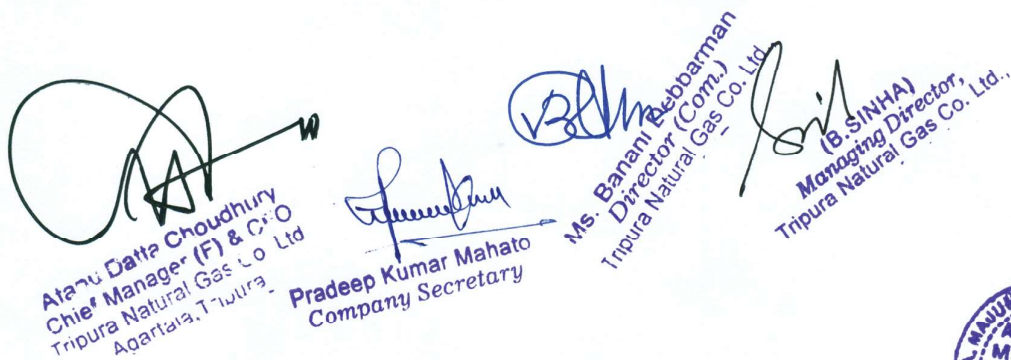 Atanu Datta Choudhury
Chief Manager (F) & CFO
Tripura Natural Gas Co Ltd
Agartala, Tripura
Pradeep Kumar Mahato
Company Secretary
Ms. Banani Debbarman
Director (Com.)
Tripura Natural Gas Co. Ltd
(B.SINHA)
Managing Director,
Tripura Natural Gas Co. Ltd.,